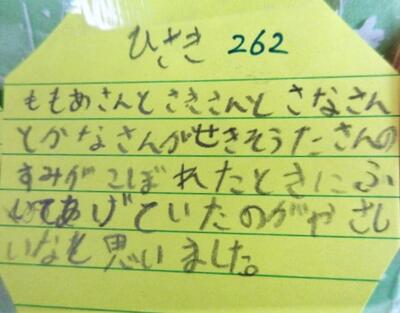 ひさき 262
ももあさんとさきさんとさなさん
とかなさんがせきそうたさんの
すみがこぼれたときにふ
いてあげていたのがやさし
いなと思いました。